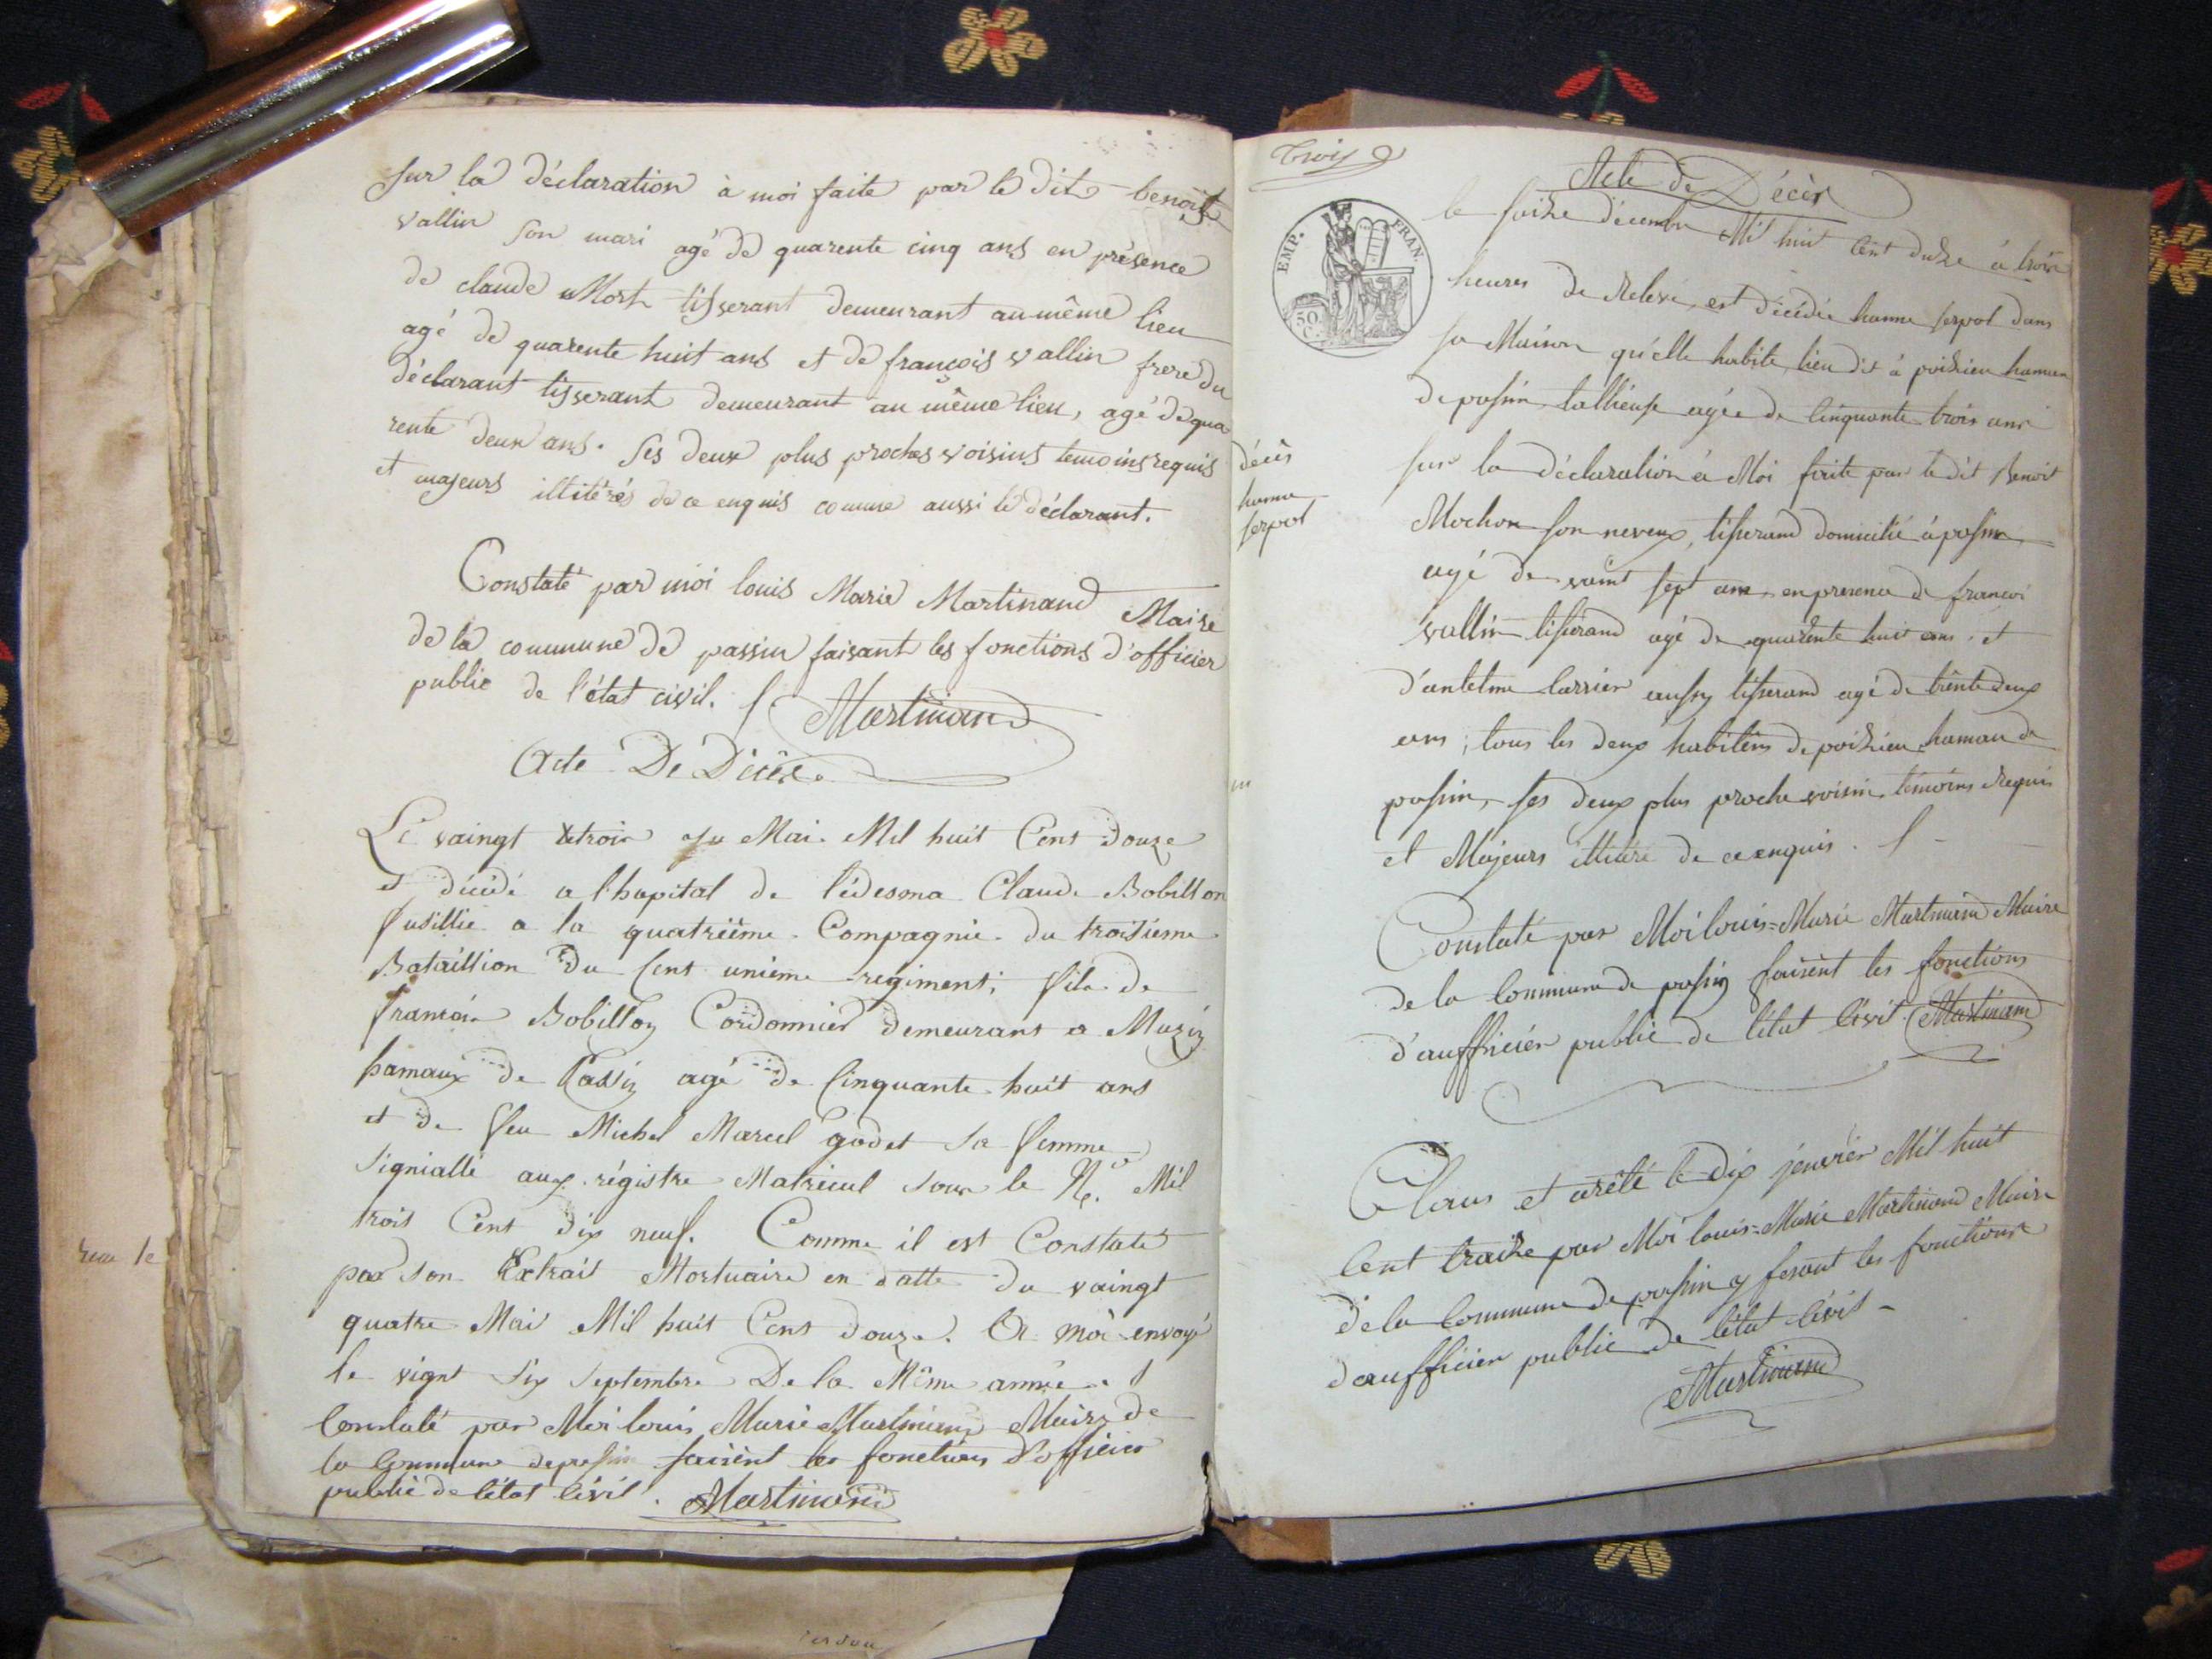 sur la déclaration à moi faite par le dit benoit
vallin son mari agé de quarente cinq ans en présence
de claude Mort tisserant demeurant au même lieu
agé de quarente huit ans et de françois vallin frere du
déclarant tisserant demeurant au même lieu, agé de qua
rente deux ans. ses deux plus proches voisins temoins requis
et majeurs illitérés de ce enquis comme aussi le déclarant.
Constaté par moi louis Marie Martinand Maire
de la commune de passin faisant les fonctions d'officier
public de l'état civil. Martinand
Acte De Décès
Le vaingt trois Mai Mil huit Cent douze
et décédé a l'hopital de lédesma Claude Bobillon
fusillié a la quatriéme Compagnie du troisiéme
Bataillion du Cent uniéme regiment, fils de
francois Bobillon Cordonnier demeurant a Muzin
hamaux de Passin agé de Cinquante huit ans
et de feu Michel Marcel godet sa femme
signiallé aux régistre Matricul sous le No. Mil
trois Cent dix neuf. Comme il est Constaté
par son Extrait Mortuaire en datte du vaingt
quatre Mai Mil huit Cent douze. A moi envoyé
le vignt six septembre De la Même année
Constaté par Moi louis Marie Martinand Maire de
la Commune de passin faisent les fonctions d'officier
public de l'état civil. Martinand
Trois
Acte de Décès
EMP. FRAN.
50 C.
le saize décembre Mil huit cent duze à trois
heures de Relevé, est décédée hanne serpol dans
sa Maison qu'elle habite, lieu dit à poizieu hamau
de passin, tallieuse agée de cinquante trois ans
décès
hanne
serpol
sur la déclaration à Moi faite par le dit Benoit
Mochon son neveux, tisserand domicilié à passin
agé de vaint sept ans, en presence de francoi
vallin tisserand agé de quarente huit ans, et
d'antelme carrier aussy tisserand agé de trente deux
ans; tous les deux habitens de poizieu hamau de
passin, ses deux plus proche voisin, témoins Requis
et Majeurs illitéré de ce enquis.
Constaté par Moi louis=Marie Martinand Maire
de la Commune de passin faisent les fonctions
d'aufficiér public de l'état civil Martinand
Claus et arêté le dix jenviér Mil huit
cent traize par Moi louis=Marie Martinand Maire
de la Commune de passin y fesant les fonctions
d'aufficier public de l'état civil
Martinand